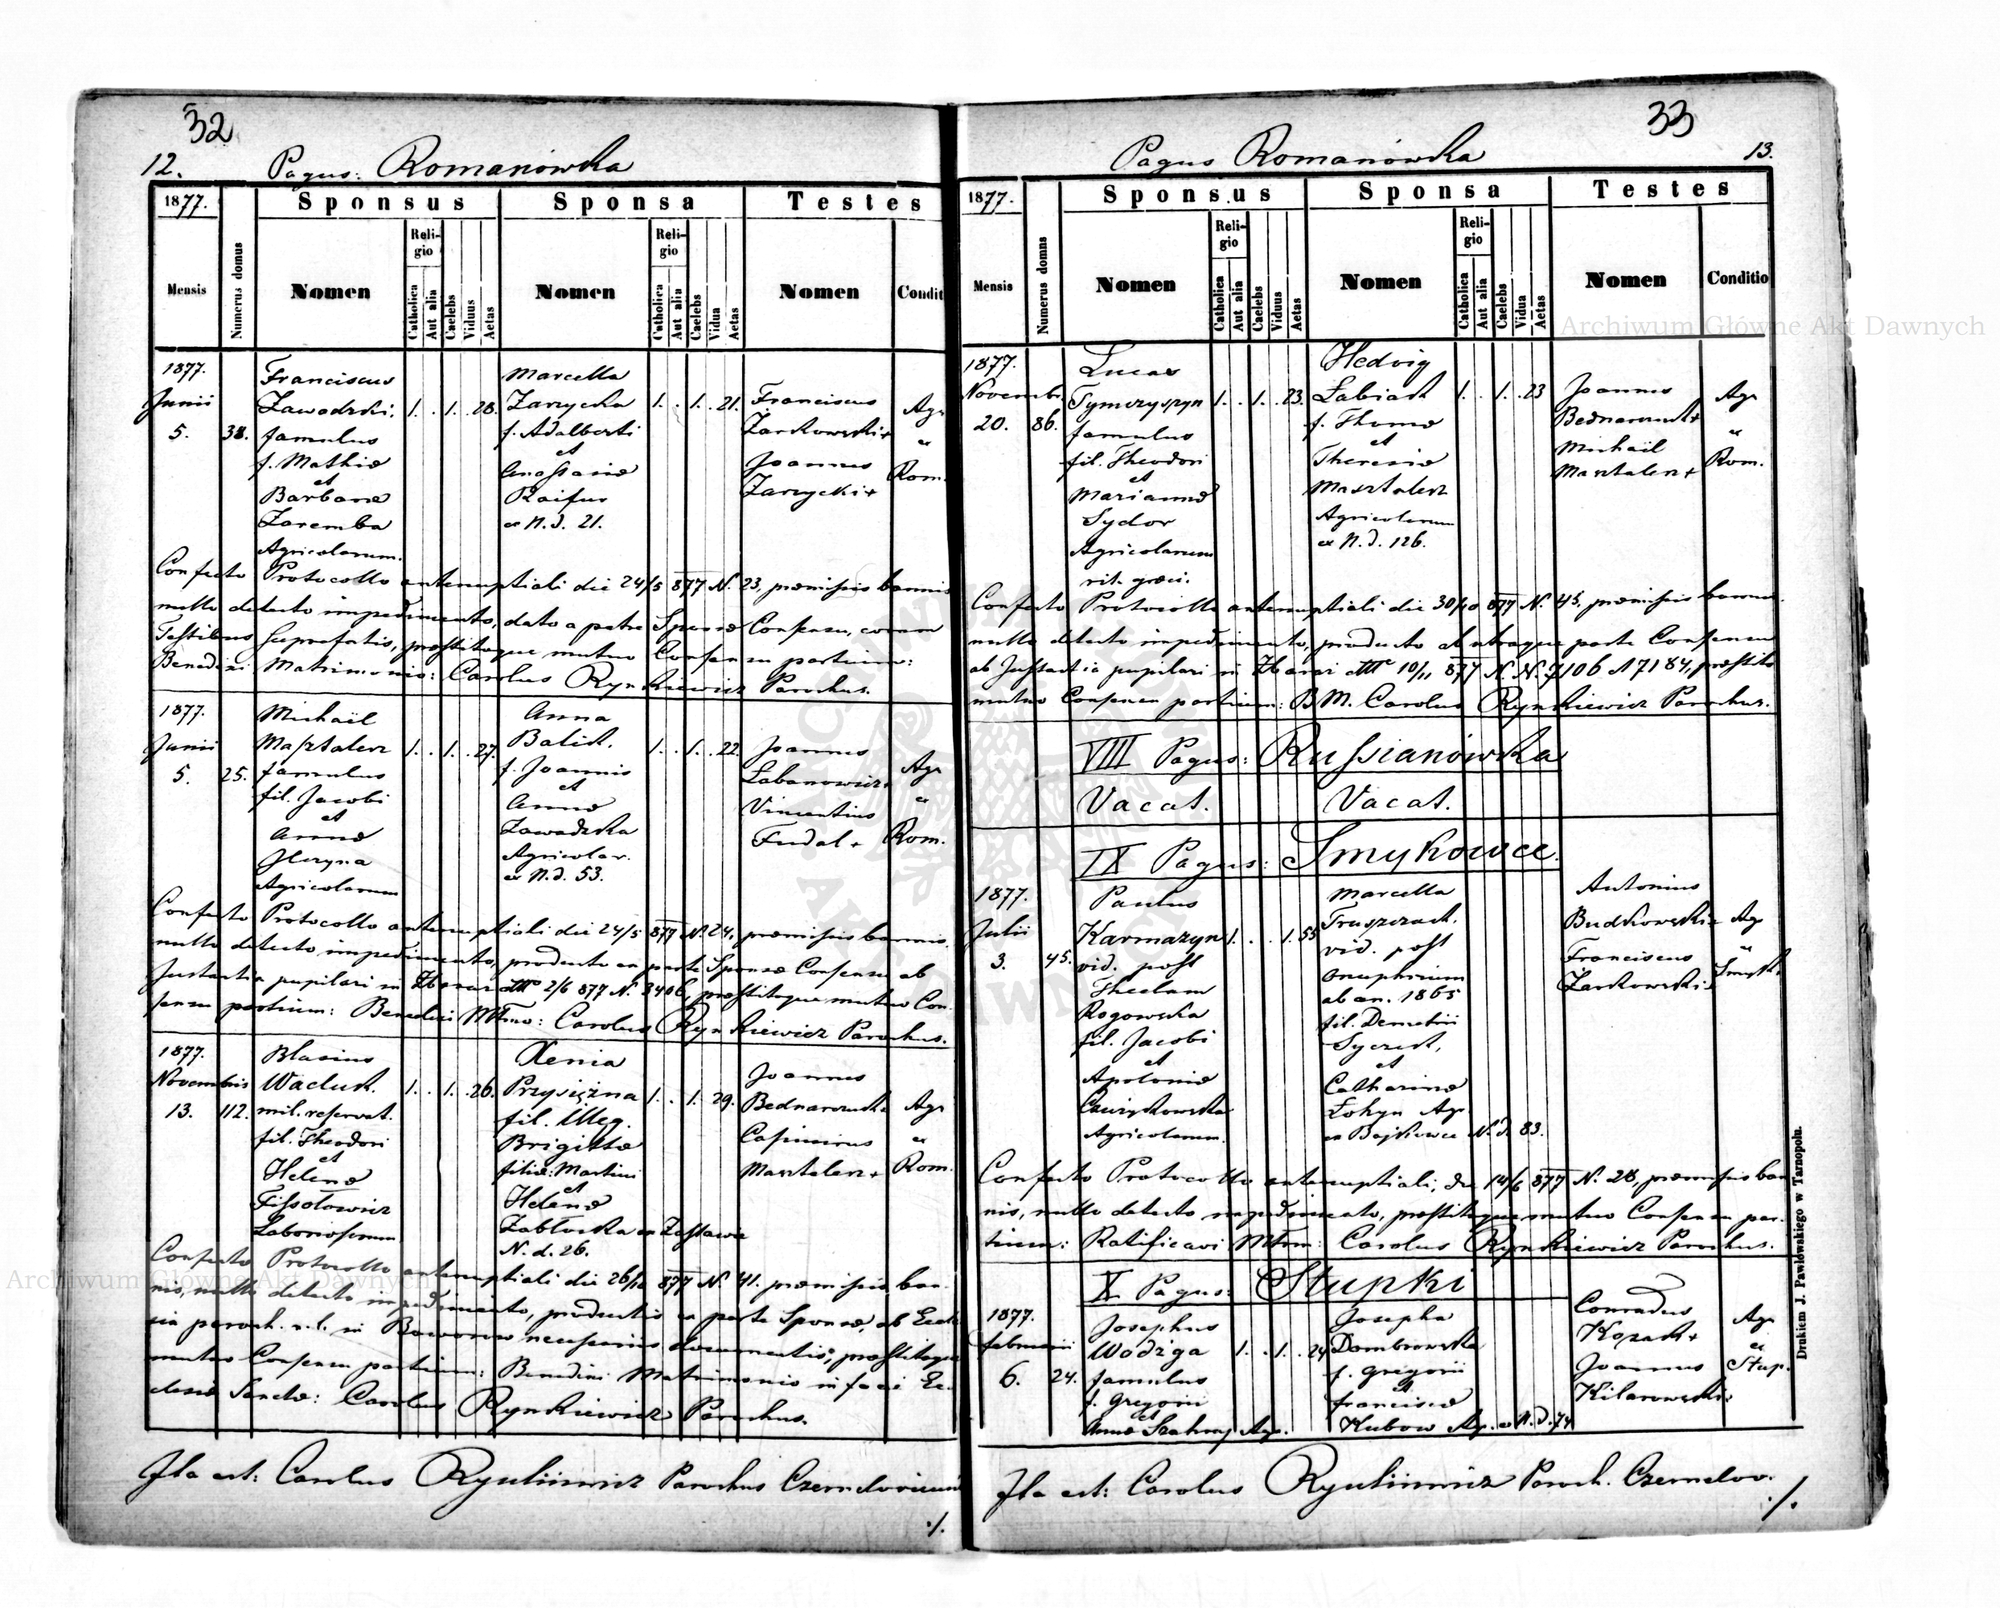 32
12. Pagus: Romanówka
1877.
Sponsus
Sponsa
Testes
Mensis
Numerus domus
Nomen
Religio
Catholica
Aut alia
Caelebs
Viduus
Aetas
Nomen
Religio
Catholica
Aut alia
Caelebs
Vidua
Aetas
Nomen
Condit
1877.
Junii
5.
38.
Franciscus
Zawadzki,
famulus
f. Mathiæ
et
Barbaræ
Zaremba
Agricolarum.
1. . 1. . 28.
Marcella
Zarzycka
f. Adalberti
et
Anastasiæ
Raifur
ex N. d. 21.
1. . 1. . 21.
Franciscus
Zarkowski +
Joannes
Zarzycki +
Agr
ex
Rom.
Confecto Protocollo antenuptiali die 24/5 877 N. 23, præmissis bannis
nullo detecto impedimento, dato a patre Sponsæ Consensu, coram
Testibus suprafatis, præstitoque mutuo Consensu partium:
Benedixi Matrimonio: Carolus Rynkiewicz Parochus.
1877.
Junii
5.
25.
Michaël
Masztalerz
famulus
fil. Jacobi
et
Annæ
Agricolarum
1. . 1. . 27.
Anna
Balick.
f. Joannis
et
Annæ
Zawadzka
Agricolar.
ex N. d. 53.
1. . 1. . 22.
Joannes
Łabanowicz +
Vincentius
Fudal +
Agr
ex
Rom.
Confecto Protocollo antenuptiali die 24/5 877 N. 24. præmissis bannis,
nullo detecto impedimento, producto ex parte Sponsæ Consensu ab
Instantia pupilari in Zbaraż dtto 2/6 877 N. 3406, præstitoque mutuo Con-
sensu partium: Benedixi Mtrmo: Carolus Rynkiewicz Parochus.
1877.
Novembris
13.
112.
Blasius
Wacluk.
mil. reservat.
fil. Theodori
et
Helenæ
Fissołowicz
Laboriosorum
1. . 1. . 26.
Xenia
Przysiężna
fil. Illeg.
Brigittæ
filiæ: Martini
et
Helenæ
Zabłocka ex Zastawie
N. d. 26.
1. . 1. . 29.
Joannes
Bednarczuk +
Casimirus
Masztalerz +
Agr
ex
Rom.
Confecto Protocollo antenuptiali die 26/10 877 N. 41. præmissis ban-
nis, nullo detecto impedimento, productis ex parte Sponsæ, ab Eccle-
sia paroch. r. l. in Baworow necessariis documentis, præstitoque
mutuo Consensu partium: Benedixi Matrimonio in facie Ec-
clesiæ Sanctæ: Carolus Rynkiewicz Parochus.
Ita est: Carolus Rynkiewicz Parochus
./.
33
Pagus Romanówka 13.
1877.
Sponsus
Sponsa
Testes
Mensis
Numerus domus
Nomen
Religio
Catholica
Aut alia
Caelebs
Viduus
Aetas
Nomen
Religio
Catholica
Aut alia
Caelebs
Vidua
Aetas
Nomen
Conditio
1877.
Novembr.
20.
86.
Lucas
Tymczyszyn
famulus
fil. Theodori
et
Mariannæ
Sydor
Agricolarum
rit. græci.
1. . 1. . 23.
Hedvig
Łabiak
f. Thomæ
et
Theresiæ
Masztalerz
Agricolarum
ex N. d. 126.
1. . 1. . 23
Joannes
Bednarczuk +
Michaël
Masztalerz +
Agr
ex
Rom.
Confecto Protocollo antenuptiali die 30/10 877 N. 45. præmissis bannis
nullo detecto impedimento, producto ab utraque parte Consensu
ab Instantia pupilari in Zbaraż dtto 10/11 877 N. N. 7106 A 7184, præstito
mutuo Consensu partium: B M. Carolus Rynkiewicz Parochus.
VIII Pagus: Russianówka
Vacat. Vacat.
IX Pagus: Smykowce.
1877.
Julii
3.
45.
Paulus
Karmazyn
vid. post
Theclam
Rogowska
fil. Jacobi
et
Apoloniæ
Agricolarum.
1. . . 1. 55
Marcella
Truszczack.
vid. post
Onuphrium
ab an. 1865
fil. Demetrii
Syczest,
et
Catharinæ
Łohyn Agr.
ex Bajkowce N. d. 83.
Antonius
Budkowski +
Franciscus
Zarkowski +
Agr
ex
Smyk.
Confecto Protocollo antenuptiali, die 14/6 877 N. 28, præmissis ban-
nis, nullo detecto impedimento, præstitoque mutuo Consensu par-
tium: Ratificavi Mtrm: Carolus Rynkiewicz Parochus.
X Pagus: Stupki
1877.
februarii
6.
24.
Josephus
Wodzga
famulus
f. Gregorii
et
Annæ Agr.
1. . 1. . 24
Josepha
Dombrowska
f. Gregorii
et
Franciscæ
Kubow Agr. ex N. d. 74
Conradus
Kozack +
Joannes
Kilarowski +
Agr
ex
Stup.
Ita est: Carolus Rynkiewicz Paroch. Czernelov.
./.
Drukiem J. Pawłowskiego w Tarnopolu.
Archiwum Główne Akt Dawnych
Archiwum Główne Akt Dawnych